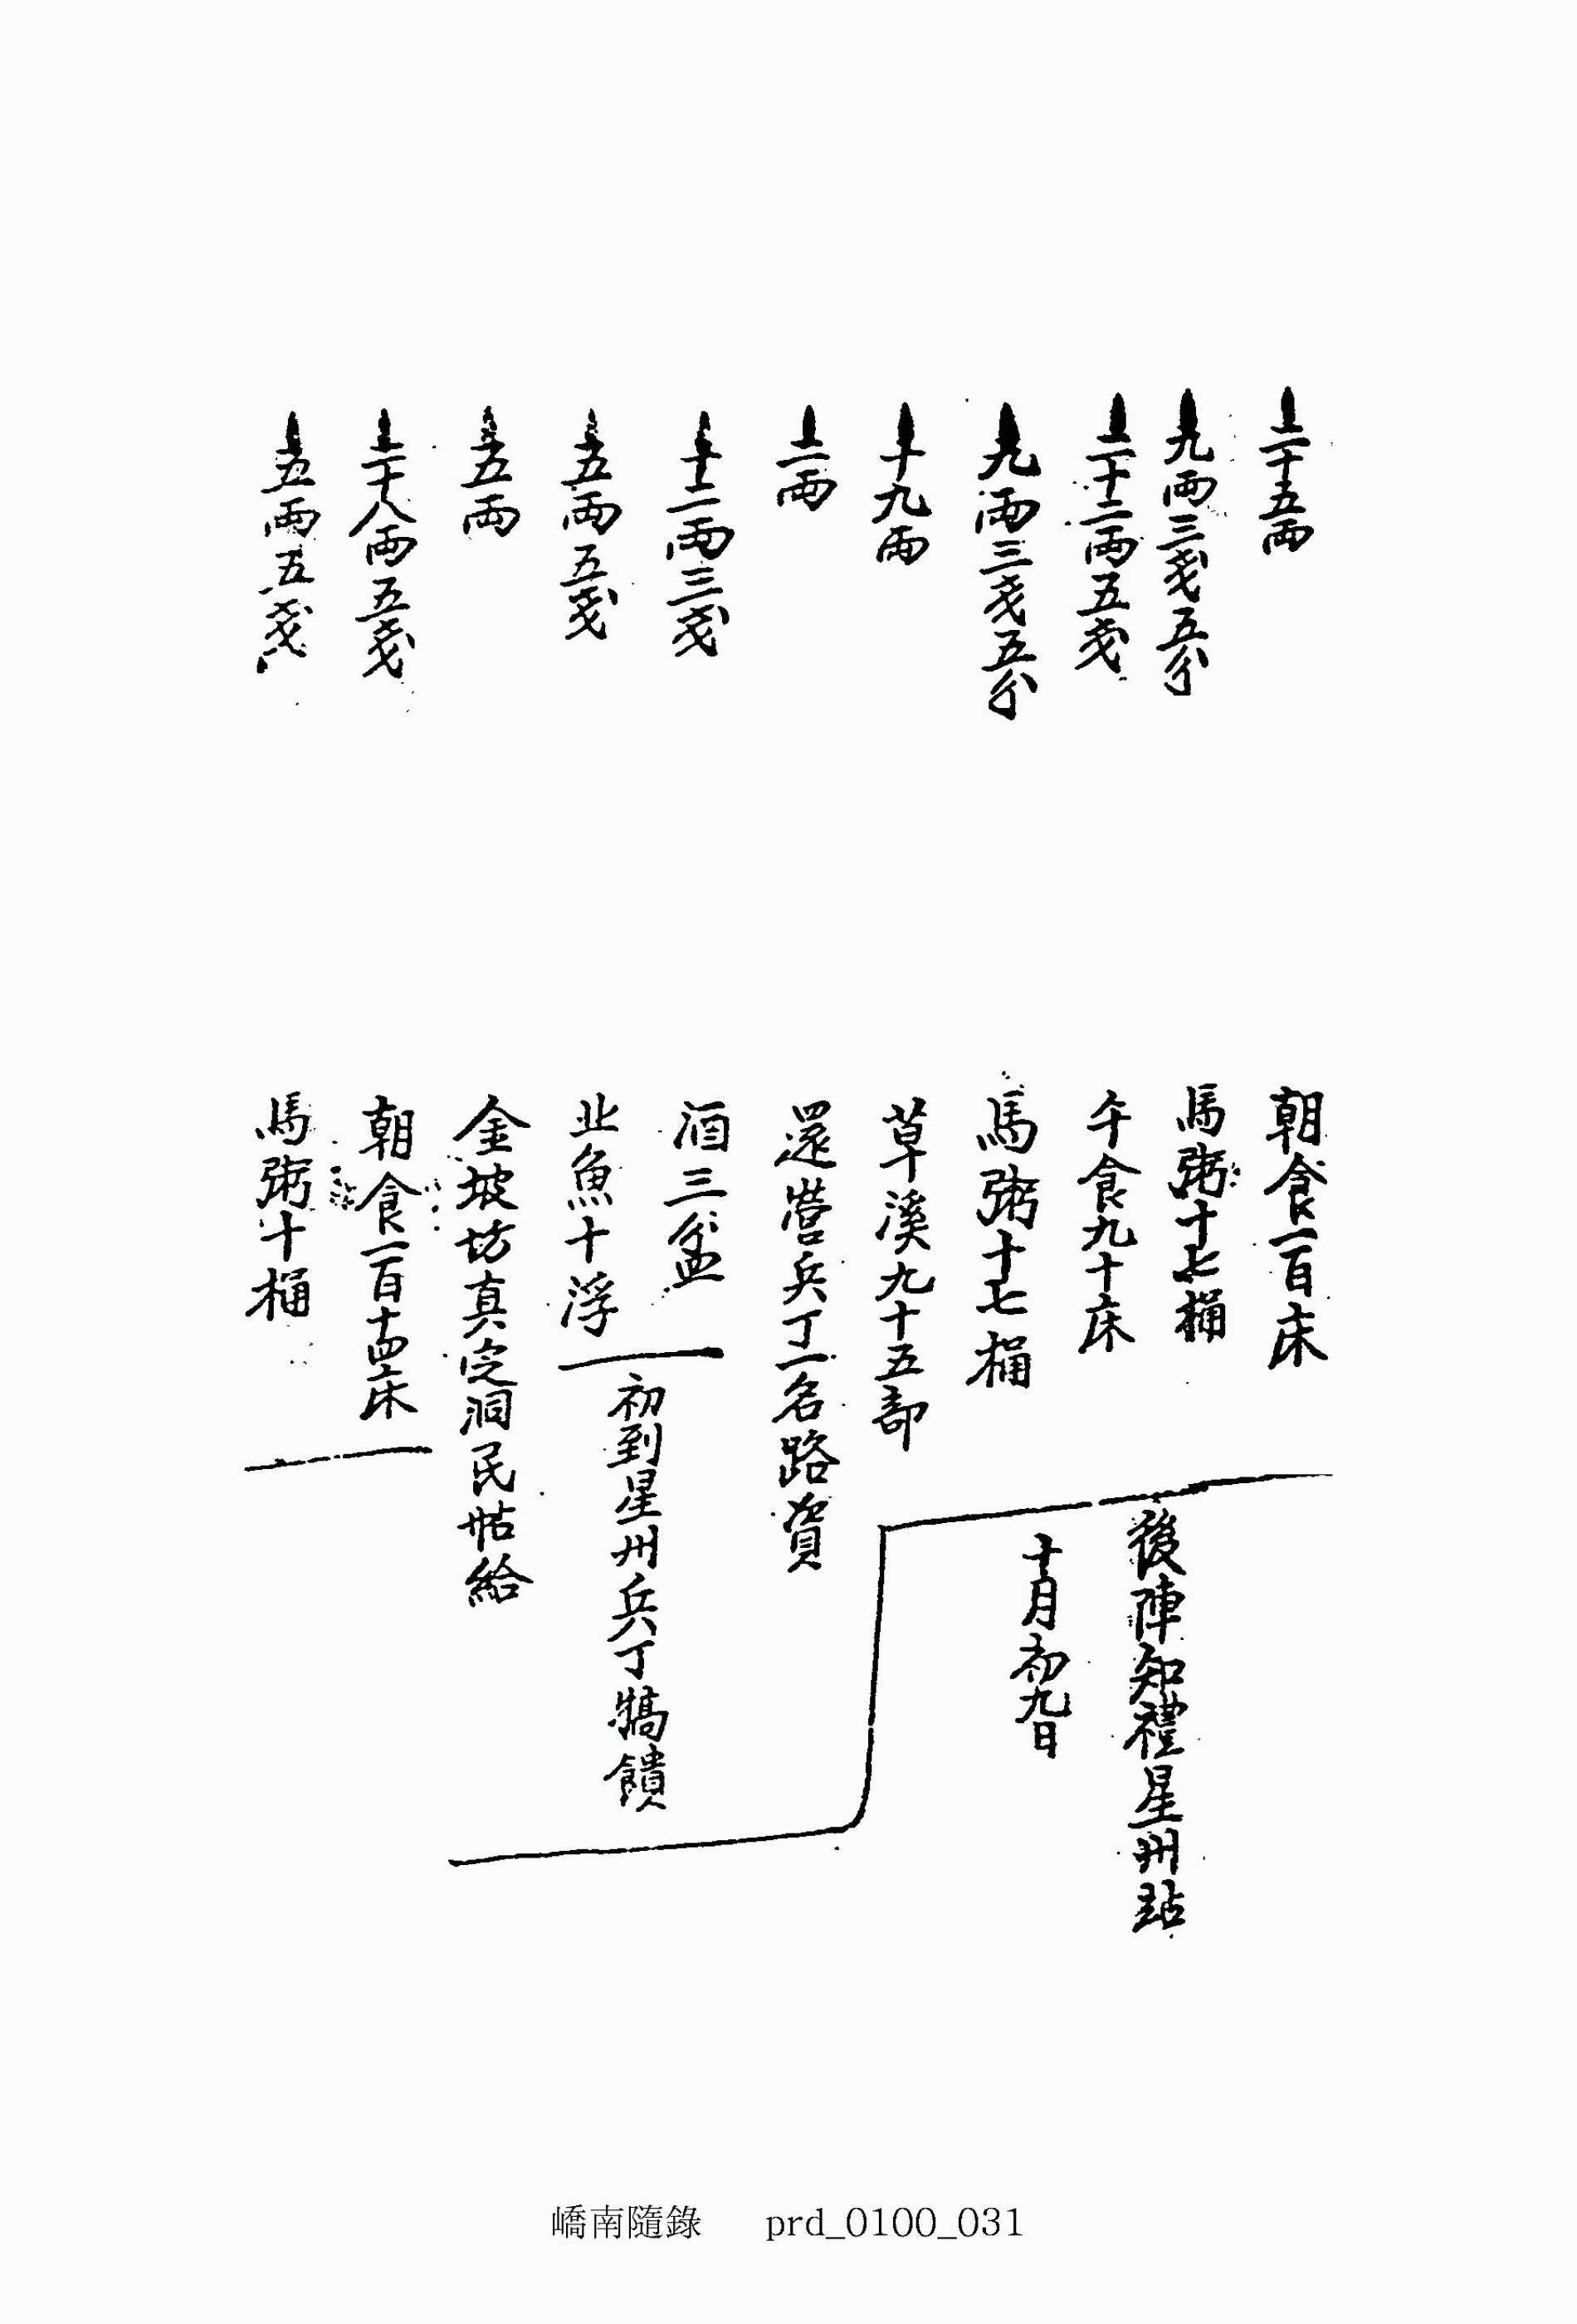 二十五兩 朝食一百床
九兩三戔五分 馬粥十七桶
二十二兩五戔 午食九十床
九兩三戔五分 馬粥十七桶
後陣知禮星州站
十月初九日
十九兩 草溪九十五部
二兩 還營兵丁一名路資
十二兩三戔 酒三盆
五兩五戔 北魚十浮
初到星州兵丁犒饋
五兩 金坡坊真定洞民帖給
二十八兩五戔 朝食一百十四床
五兩五戔 馬粥十桶
嶠南隨錄 prd_0100_031